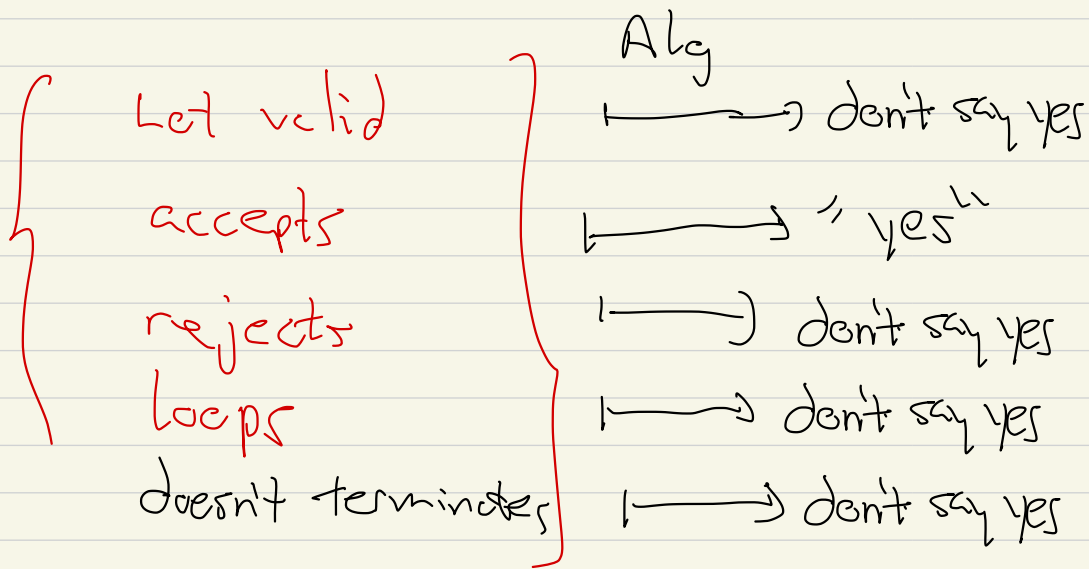 Alg
not valid ↦ don't say yes
accepts ↦ "yes"
rejects ↦ don't say yes
loops ↦ don't say yes
doesn't terminates ↦ don't say yes